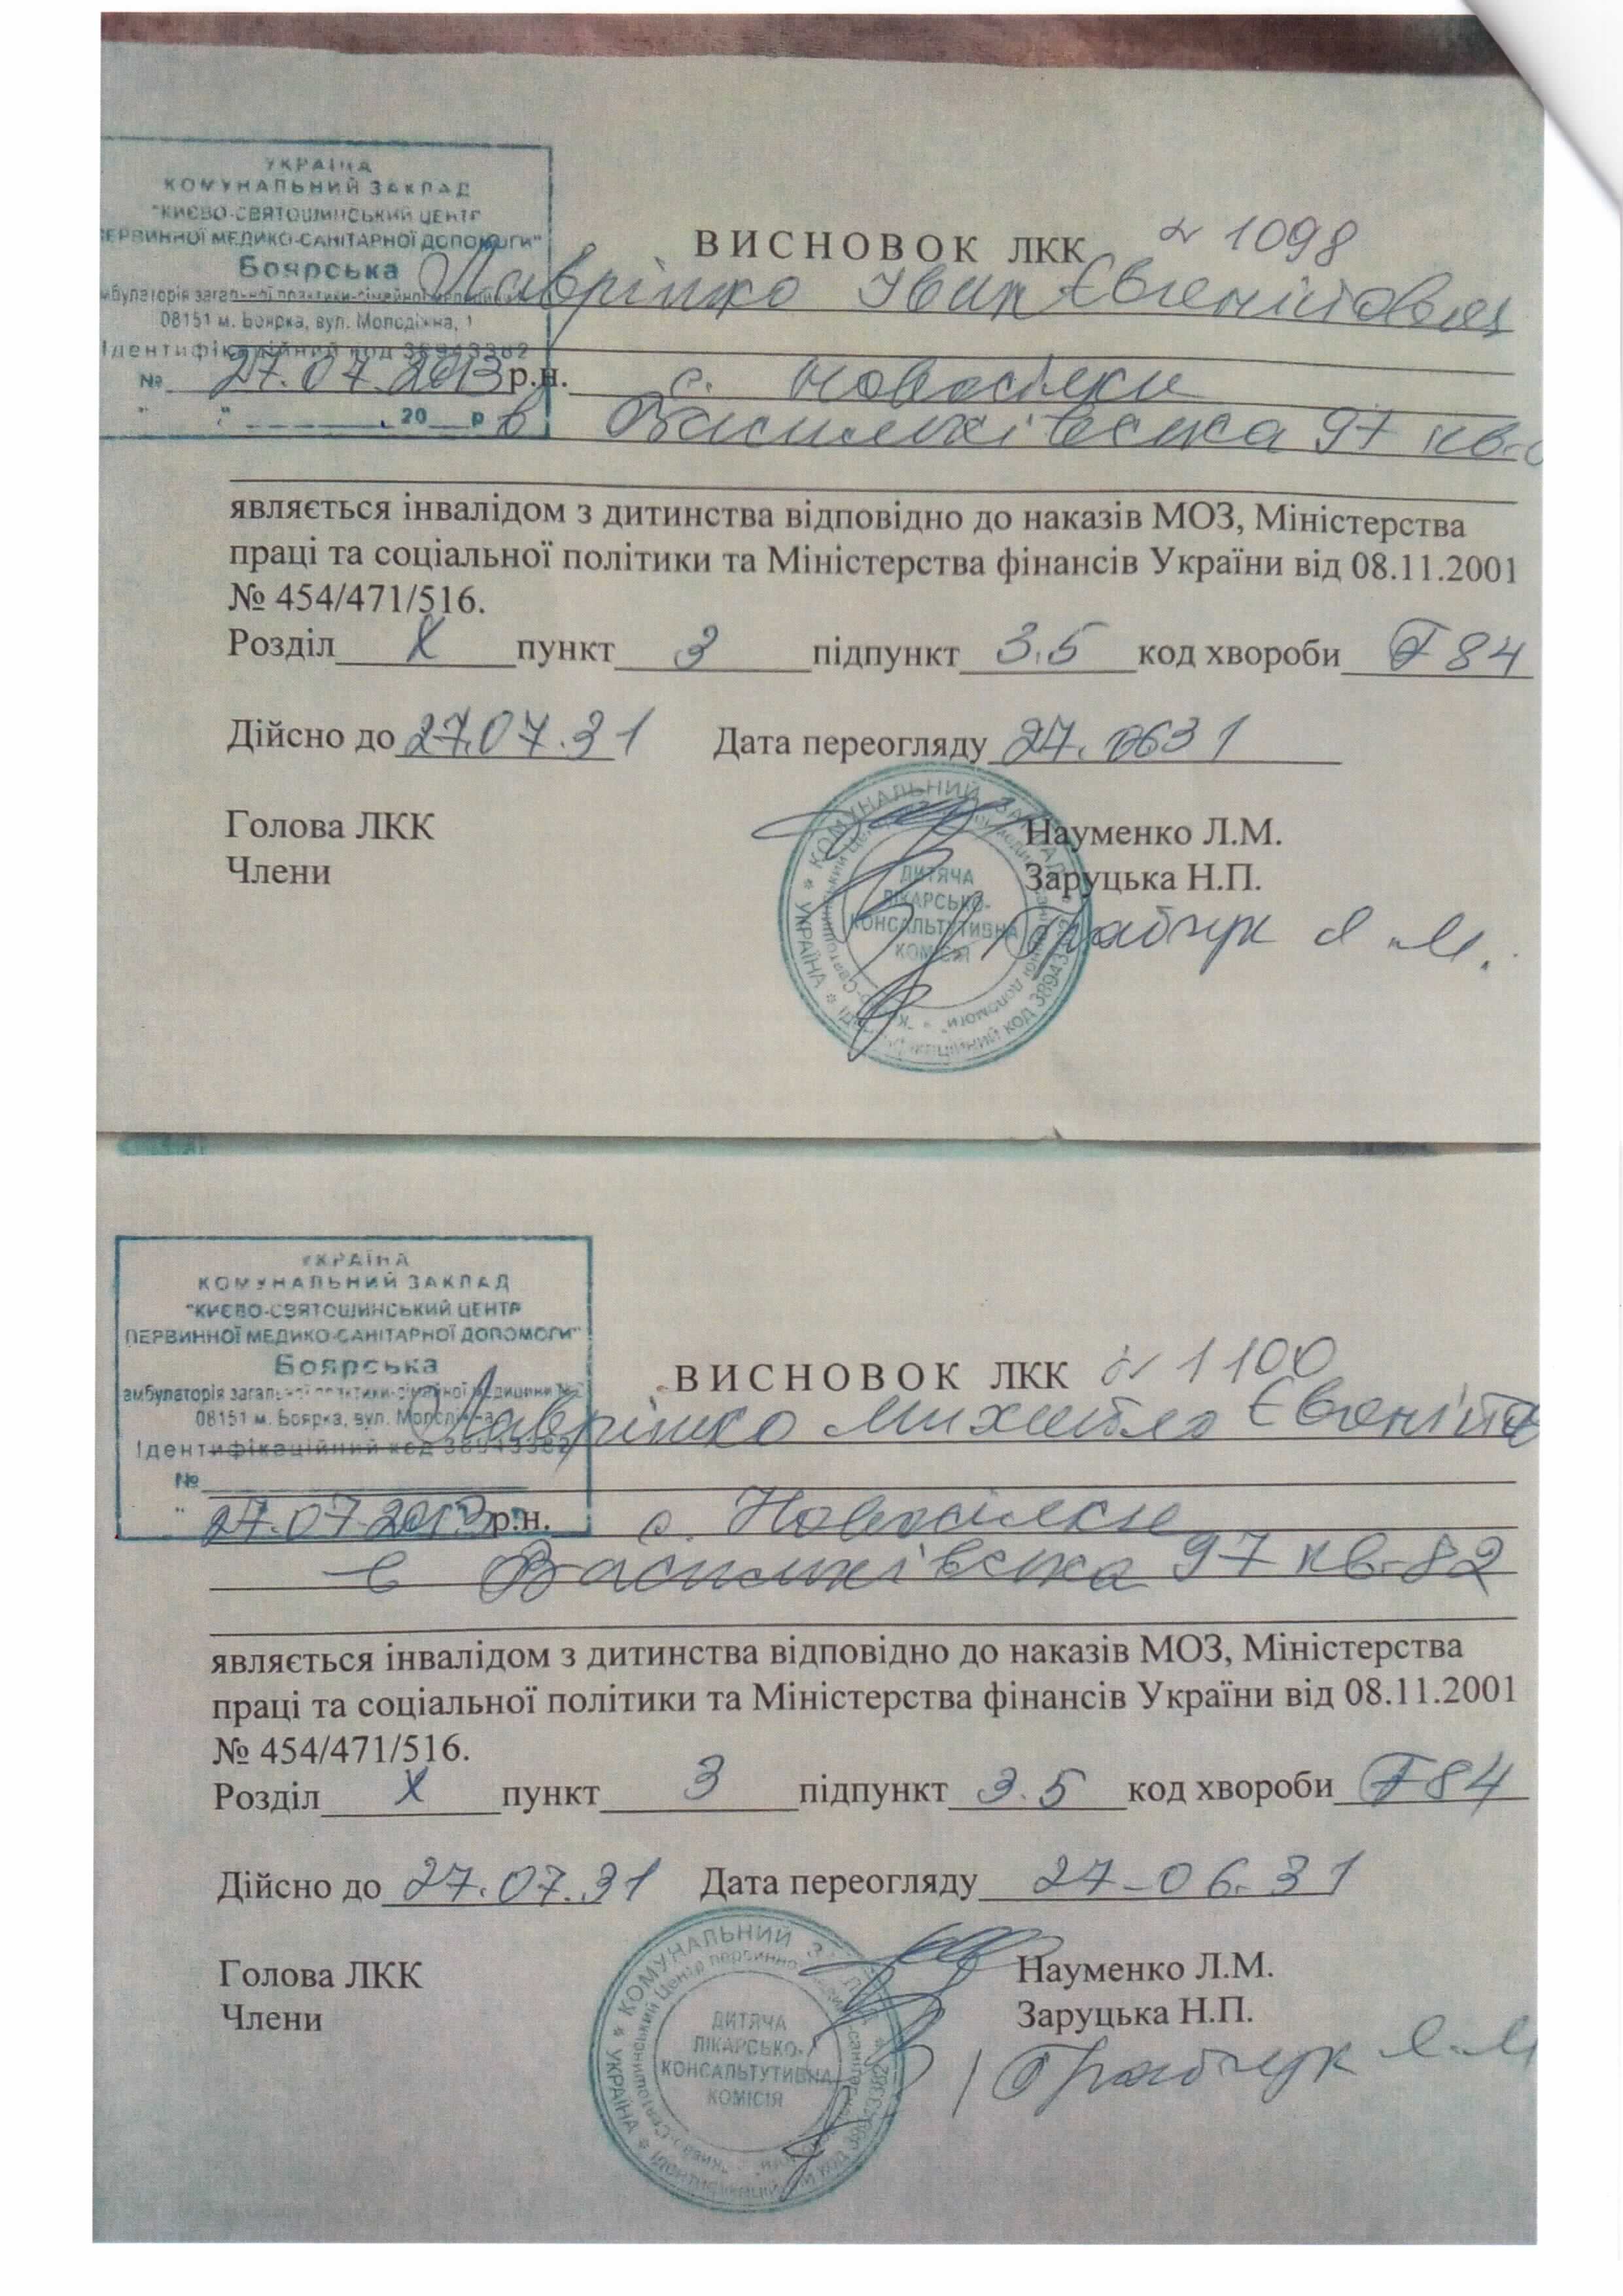 УКРАЇНА
КОМУНАЛЬНИЙ ЗАКЛАД
"КИЄВО-СВЯТОШИНСЬКИЙ ЦЕНТР
ЕРВИННОЇ МЕДИКО-САНІТАРНОЇ ДОПОМОГИ"
Боярська
мбулаторія загальної практики-сімейної медицини
08151 м. Боярка, вул. Молодіжна, 1
Ідентифікаційний код 38943382
№
" " 20 р
ВИСНОВОК ЛКК № 1098
Лаврінко Іван Євгенійович
27.07.2013 р.н. с. Новосілки
в Васильківська 97 кв.
являється інвалідом з дитинства відповідно до наказів МОЗ, Міністерства
праці та соціальної політики та Міністерства фінансів України від 08.11.2001
№ 454/471/516.
Розділ X пункт 3 підпункт 3.5 код хвороби F 84
Дійсно до 27.07.31 Дата переогляду 27.0631
Голова ЛКК Науменко Л.М.
Члени Заруцька Н.П.
Грабчук Я.М.
КОМУНАЛЬНИЙ ЗАКЛАД * УКРАЇНА *
ДИТЯЧА
ЛІКАРСЬКО-
КОНСАЛЬТУТИВНА
КОМІСІЯ
УКРАЇНА
КОМУНАЛЬНИЙ ЗАКЛАД
"КИЄВО-СВЯТОШИНСЬКИЙ ЦЕНТР
ПЕРВИННОЇ МЕДИКО-САНІТАРНОЇ ДОПОМОГИ"
Боярська
амбулаторія загальної практики-сімейної медицини №
08151 м. Боярка, вул. Молодіжна
Ідентифікаційний код 38943382
№
"
ВИСНОВОК ЛКК № 1100
Лаврінко Михайло Євгеній
27.07.2013 р.н. с. Новосілки
в Васильківська 97 кв.82
являється інвалідом з дитинства відповідно до наказів МОЗ, Міністерства
праці та соціальної політики та Міністерства фінансів України від 08.11.2001
№ 454/471/516.
Розділ X пункт 3 підпункт 3.5 код хвороби F84
Дійсно до 27.07.31 Дата переогляду 27-06.31
Голова ЛКК Науменко Л.М.
Члени Заруцька Н.П.
Грабчук Я.М
КОМУНАЛЬНИЙ * УКРАЇНА *
ДИТЯЧА
ЛІКАРСЬКО-
КОНСАЛЬТУТИВНА
КОМІСІЯ